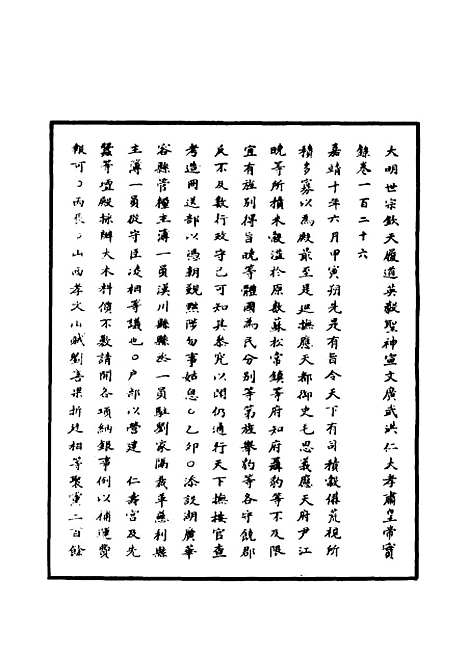 大明世宗欽天履道英毅聖神宣文廣武洪仁大孝肅皇帝寶
錄卷一百二十六
嘉靖十年六月甲寅朔先是有旨令天下有司積穀俻荒視所
積多寡以為殿最至是巡撫應天都御史毛思義應天府尹江
曉等所積米穀溢於原數蘇松常鎮等府知府聶豹等不及限
宜有旌別得旨曉等體國為民分別等第旌舉豹等各守饒郡
反不及數行政守己可知其參究以聞仍通行天下撫按官查
考造冊送部以憑朝覲黜陟勿事姑息○乙卯○添設湖廣華
容縣管糧主簿一員漢川縣縣丞一員駐劉家隔裁革無利縣
主簿一員從守臣凌相等議也○戶部以營建 仁壽宮及先
蠶等壇殿採辦大木料價不敷請開各項納銀事例以補運費
報可○丙辰○山西孝义山賊劉善梁折廷相等聚黨二百餘